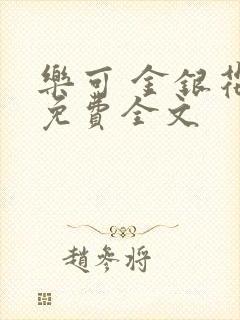 樂可 金銀花
免費全文
趙參將